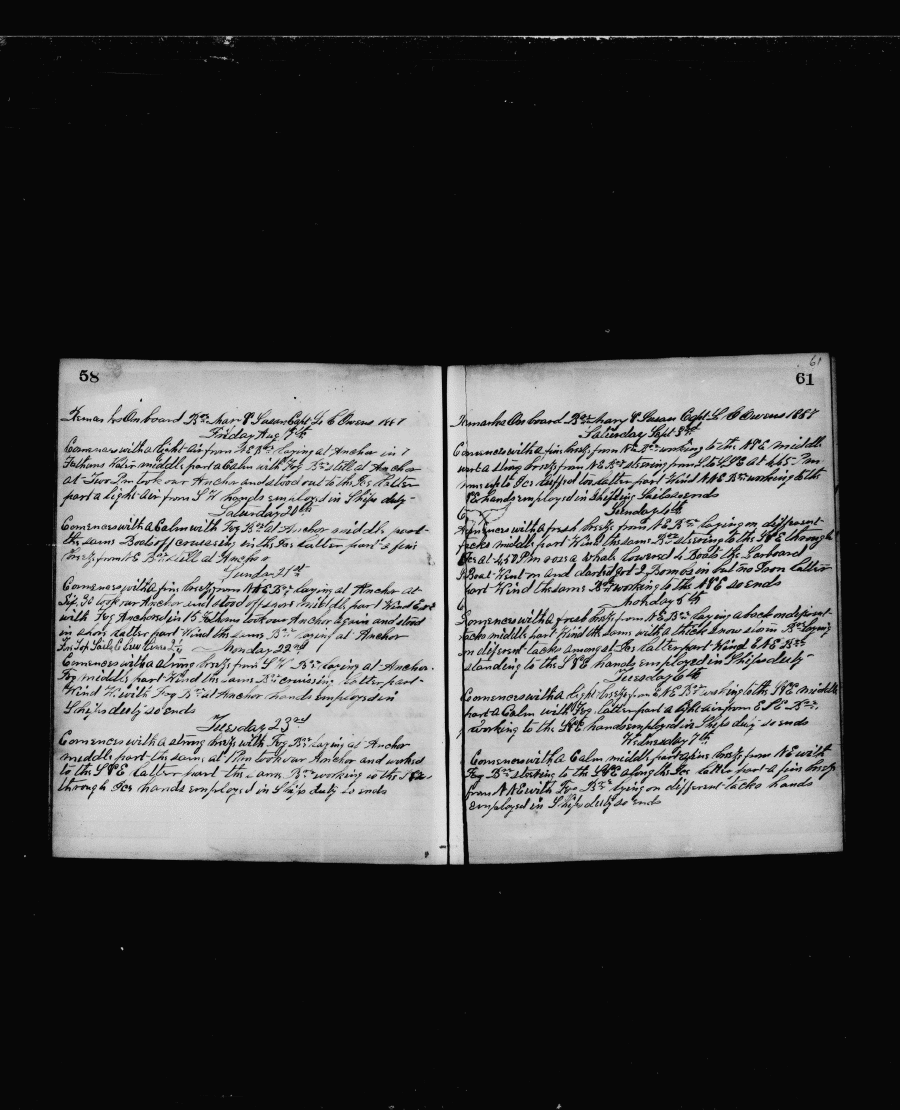 58
Remarks Onboard Bark Mary & Susan Capt L C Owens 1887
Friday Aug 19th
Comences with a light Air from NE Bk laying at Anchor in 7
Fathoms Water middle part a Calm with Fog Bk still at Anchor
at Two Pm took our Anchor and stood out to the Ice Latter
part a light Air from S W hands employed in Ships duty
Saturday 20th
Comences with a Calm with Fog Bk at Anchor middle part
the same Boats off cruseing in the Ice Latter part a fin
brese from E Bk still at Anchor
Sunday 21st
Comences with a fin brese from NNE Bk laying at Anchor at
30 took our Anchor and stood off shore middle part Wind
with Fog Anchord in 15 Fathoms took our Anchor again and stood
in shore Latter part Wind the same Bk laying at Anchor
Monday 22nd
Comences with a strong brese from S W Bk laying at Anchor
Fog middle part Wind the same Bk cruissing Latter part
Wind W with Fog Bk at Anchor hands employed in
Ships duty so ends
Tuesday 23rd
Comences with a strong brese with Fog Bk laying at Anchor
middle part the same at Pm took our Anchor and worked
to the S&E Latter part the same Bk working to the
through Ice hands employed in Ships duty so ends
61
61
Remarks Onboard Bark Mary & Susan Capt L C Owens 1887
Saturday Sept 3rd
Comences with a fin brese from Bk working to the N&E middle
part a stong brese from NE Bk steering from S to SSE at 4.45 Pm
run up to Ice Luffed too Latter part Wind NNE Bk working to the
NE hands employed in so ends
Sunday 4th
Comences with a fresh brese from NE Bk laying on different
tacks middle part Wind the same Bk steering to the S&E through
Ice at 4.50 Pm a whale lowered 4 Boats the Larboard
Boat Went on and darted got 2 Bombs in but no Iron Latter
part Wind the same Bk working to the N&E so ends
Monday 5th
Comences with a fresh brese from NE Bk laying aback on diferent
tacks middle part Wind the same with a thick snow Bk laying
on different tacks amongst Ice Latter part Wind ENE Bk
standing to the S&E hands employed in Ships duty
Tuesday 6th
Comences with a light brese from ENE Bk working to the S&E middle
part a Calm with Fog Latter part a light air from ESE Bk
working to the S&E hands employed in Ships duty so ends
Wednesday 7th
Comences with a Calm middle part a fin brese from NE with
Fog Bk to the S&E along the Ice Latter part a fin brese
from NNE with Fog Bk lying on different tacks hands
employed in Ships duty so ends